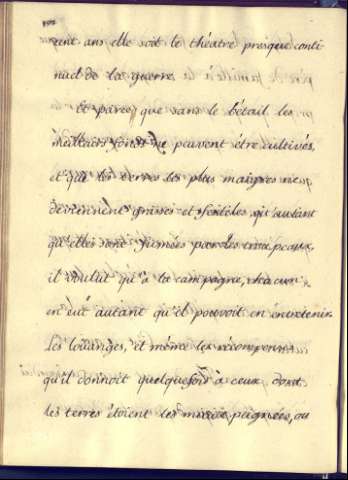 cent ans elle soit le théatre presque conti
nuel de la guerre.
Et parce que sans le bétail les
meilleurs fonds ne peuvent être cultivés,
et que les terres les plus maigres ne
deviennent grasses et fertiles qu'autant
qu'elles sont fumées par les troupeaux,
il voulut qu'à la campagne, chacun
en eut autant qu'il pouvoit en entretenir.
Les louanges, et même les récompenses
qu'il donnoit quelquefois à ceux dont
les terres étoient les mieux peignées, ou